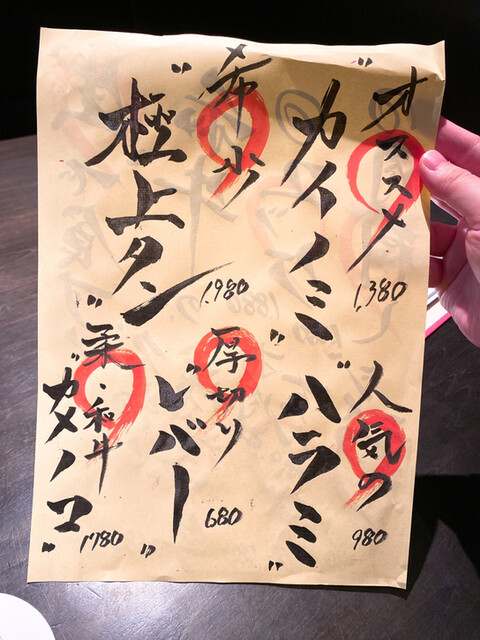 オススメ
"カイノミ"
1,380
希少
"極上タン"
1,980
人気の
"ハラミ"
980
厚切り
"レバー"
680
柔・和牛
"ガメノコ"
1780